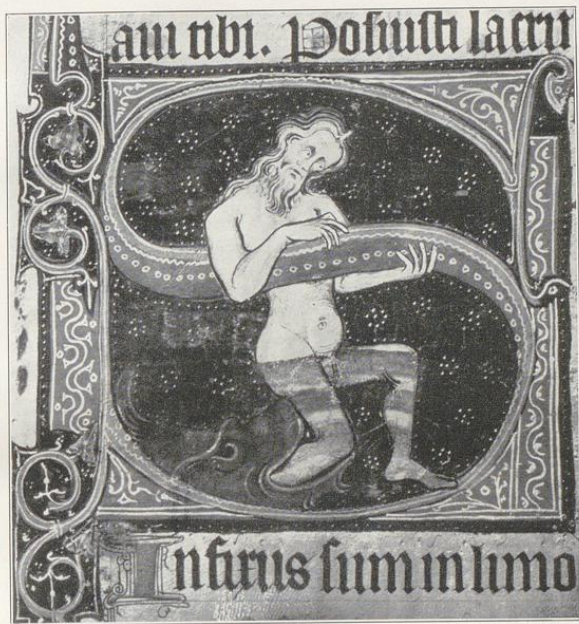 aui tibi. Posuisti lacri
S
Infixus sum in limo